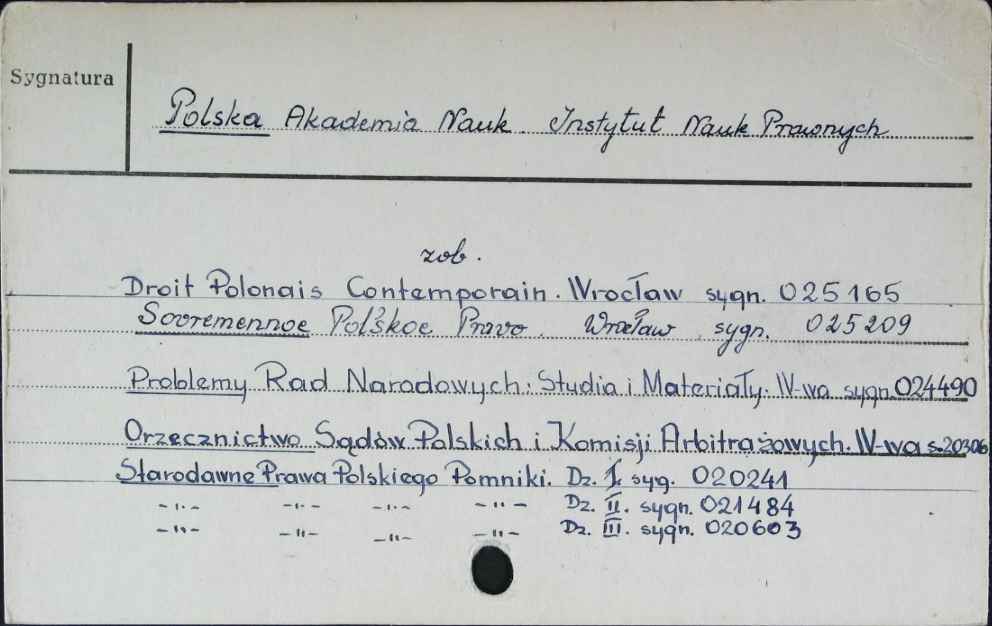 Sygnatura
Polska Akademia Nauk. Instytut Nauk Prawnych
zob.
Droit Polonais Contemporain. Wrocław sygn. 025165
Sovremennoe Pol'skoe Pravo. Wrocław sygn. 025209
Problemy Rad Narodowych: Studia i Materiały. W-wa sygn. 024490
Orzecznictwo Sądów Polskich i Komisji Arbitrażowych. W-wa s. 20306
Starodawne Prawa Polskiego Pomniki. Dz. I. syg. 020241
-"- -"- -"- -"- Dz. II. sygn. 021484
-"- -"- -"- -"- Dz. III. sygn. 020603